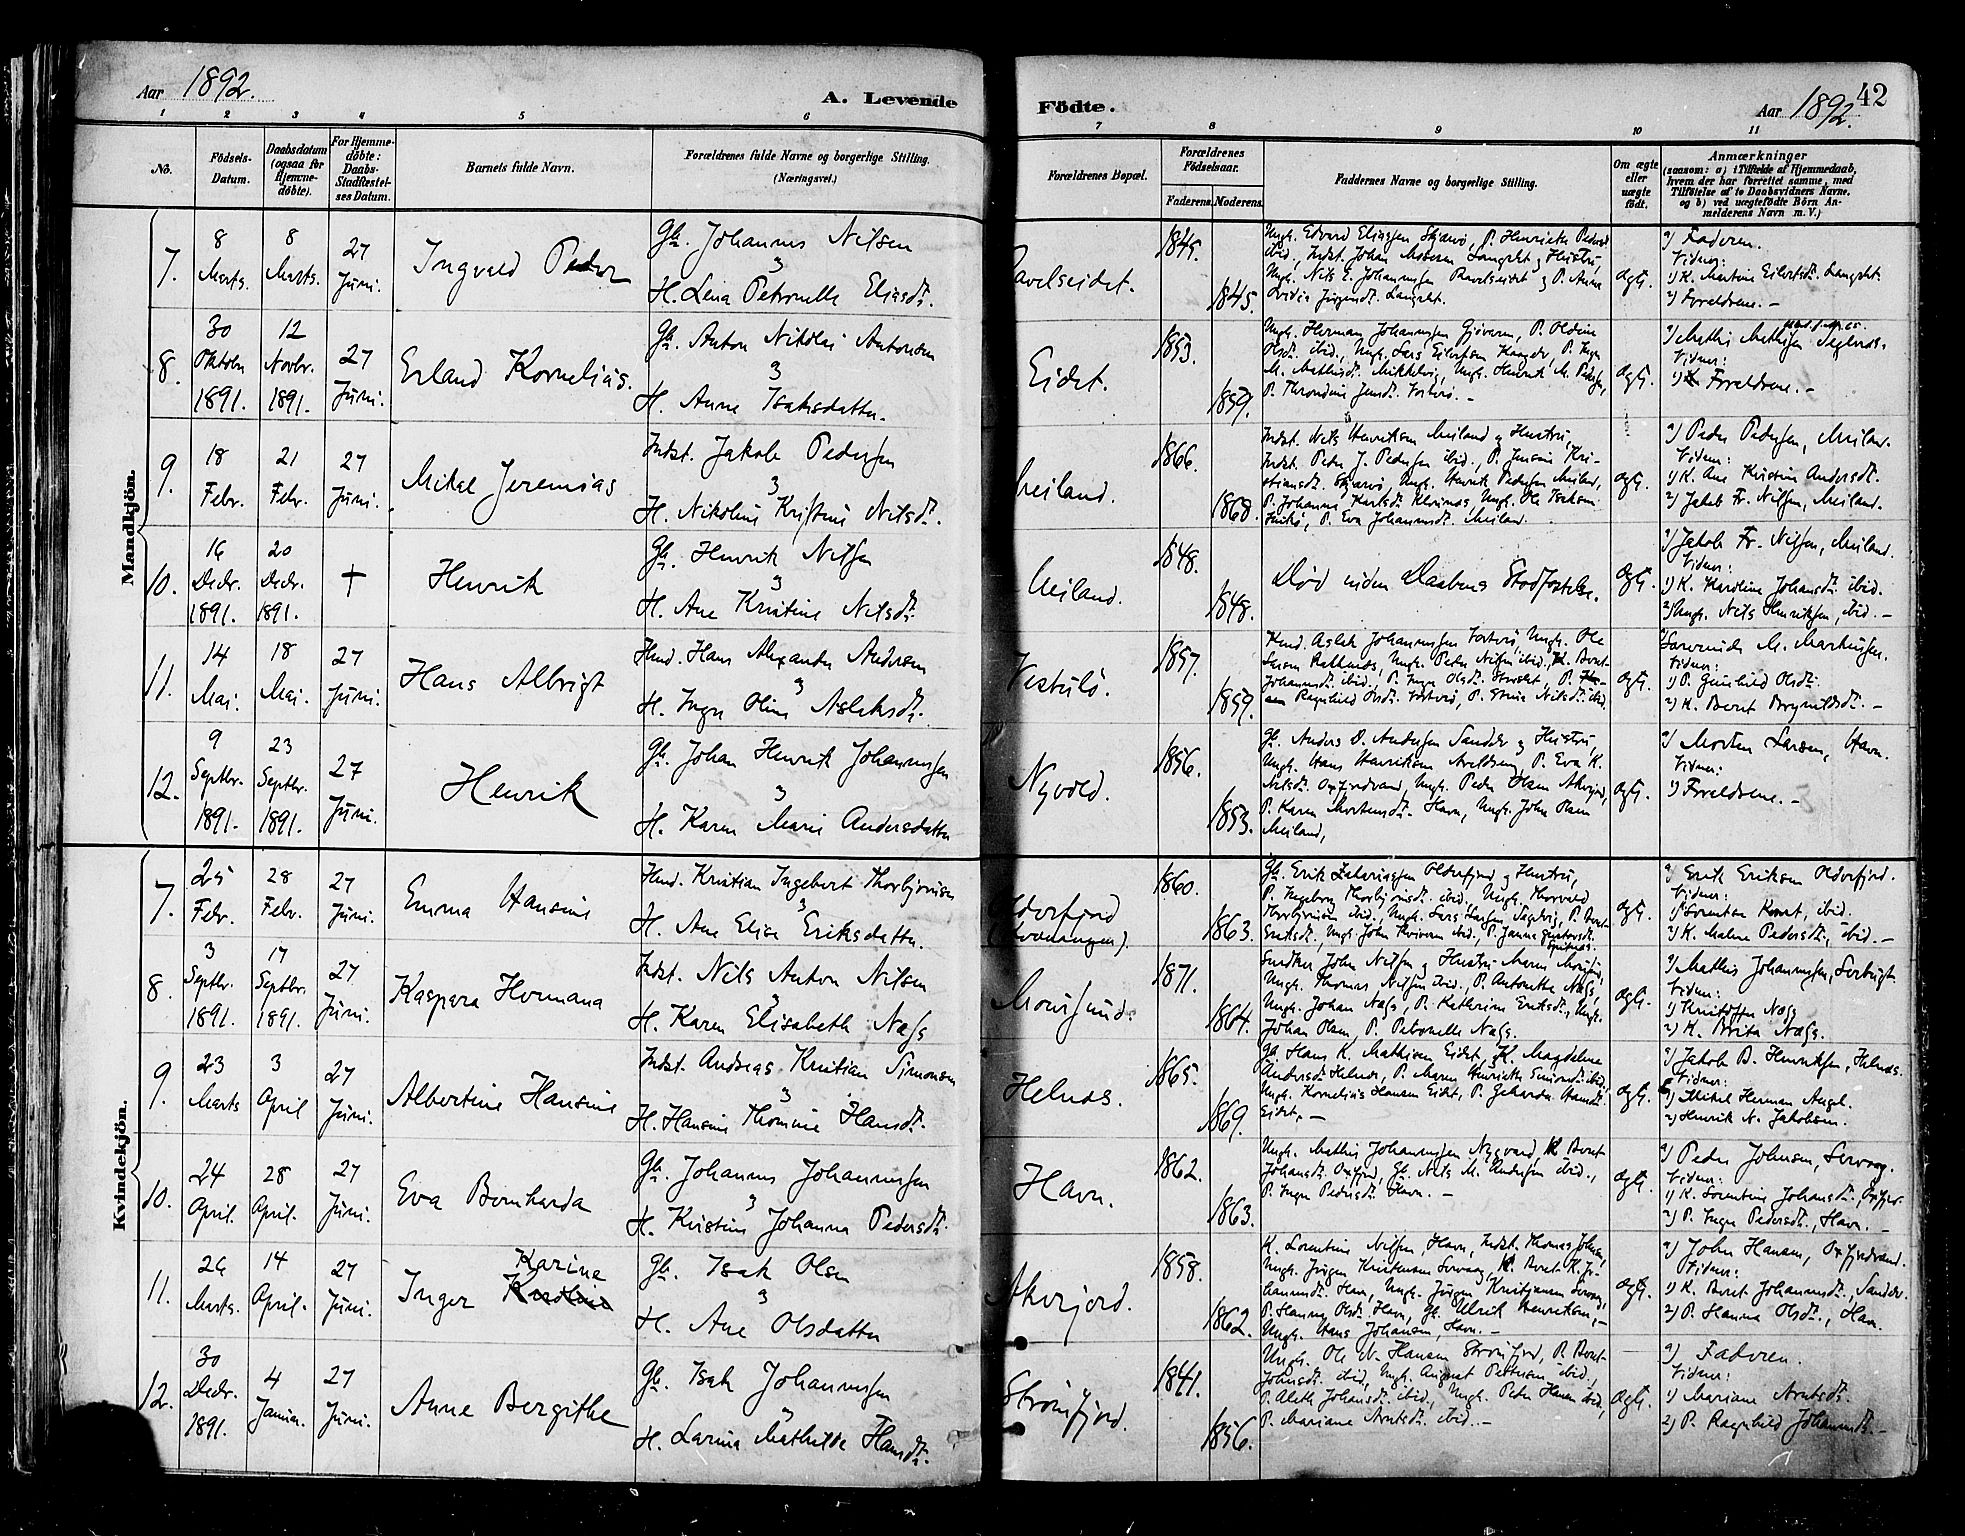 Aar 1892.
A. Levende
Födte.
Aar 1892.
42
1 2 3 4 5 6
7 8 9 10 11
No.
Födsels-
Datum.
Daabsdatum
(ogsaa for
Hjemme-
döbte).
For Hjemme-
döbte:
Daabs-
Stadfæstel-
ses Datum.
Barnets fulde Navn.
Forældrenes fulde Navne og borgerlige Stilling.
(Næringsvei.)
Forældrenes Bopæl.
Forældrenes
Födselsaar.
Faderens.
Moderens.
Faddernes Navne og borgerlige Stilling.
Om ægte
eller
uægte
födt.
Anmærkninger
(saasom: a) i Tilfælde af Hjemmedaab,
hvem der har forrettet samme, med
Tilföielse af to Daabsvidners Navne,
og b) ved uægtefödte Börn An-
melderens Navn m. V.)
Mandkjön.
7.
8
Marts.
8
Marts.
27
Juni.
Ingvald Peder
Gb. Johannes Nilsen
&
H. Lena Petronelle Eliasdt.
Ravelseidet.
1845.
1845.
Ungk. Edvard Eliassen Skjærvö, P. Henriette Pedersd.
ibid., Indst. Johan Langslet & Hustru,
Ungk. Nils E. Johannessen Ravelseidet & P. Anne
Jörgensdt. Langslet.
Ægte.
a) Faderen.
Vidner:
1) K. Martine Eilertsdt. Langslet.
2) Forældrene. -
8.
30
Oktober
1891.
12
Novbr.
1891.
27
Juni.
Erland Kornelius.
Gb. Anton Nikolai Antonsen
&
H. Anne Isaksdatter.
Eidet.
1853.
1859.
Ungk. Herman Johannessen Gjöveren, P. Oldine
Olsdt. ibid., Ungk. Lars Eilertsen P. Inger
M. Mathisdt. Ungk. Henrik M. Pedersen,
P. Jensdt.
Ægte.
a) Mathis Mathisen
Vidner:
1) Forældrene. -
9.
18
Febr.
21
Febr.
27
Juni.
Mikal Jeremias
Indst. Jakob Pedersen
&
H. Nikoline Kristine Nilsdt.
Meiland.
1866.
1868.
Indst. Nils Henriksen Meiland & Hustru,
Indst. Peder J. Pedersen ibid., P. Jensine Kri-
stiansdt. Skjærvö, Ungk. Henrik Pedersen Meiland,
P. Johanne Karlsdt. Ungk. Ole Isaksen
P. Eva Johannesdt. Meiland.
Ægte.
a) Peder Pedersen, Meiland.
Vidner:
1) K. Ane Kristine Andersdt.
2) Jakob Fr. Nilsen, Meiland.
10.
16
Decbr.
1891.
20
Decbr.
1891.
+
Henrik
Gb. Henrik Nilsen
&
H. Ane Kristine Nilsdt.
Meiland.
1848.
1848.
Död uden Daabens Stadfæstelse.
Ægte.
a) Jakob Fr. Nilsen, Meiland.
Vidner:
1) K. Karoline Johansdt. ibid.
2) Ungk. Nils Henriksen, ibid. -
11.
14
Mai.
18
Mai.
27
Juni.
Hans Albrigt
Hmd. Hans Alexander Andersen
&
H. Inger Oline Aslaksdt.
1857.
1859.
Hmd. Aslak Johannessen Vorterö, Ungk. Ole
Larsen Ungk. Peder Nilsen ibid., K. Beret
Johannesdt. ibid. P. Inger Olsdt. P.
Ragnhild Olsdt. Vorterö, P. Nilsdt. ibid.
Ægte.
a) M. Markussen.
Vidner:
1) P. Gunhild Olsdt.
2) K. Beret Brynildsdt. -
12.
9
Septbr.
1891.
23
Septbr.
1891.
27
Juni.
Henrik
Gb. Johan Henrik Johannessen
&
H. Karen Marie Andersdatter
Nyvold.
1856.
1853.
Gb. Anders O. Andersen Sandör & Hustru,
Ungk. Hans Henriksen P. Eva K.
Nilsdt. Oxfjordvand, Ungk. Peder Olsen Akerjord,
P. Karen Mortensdt. Havn, Ungk. John Olsen
Meiland,
Ægte.
a) Morten Larsen, Havn.
Vidner:
1) Forældrene. -
Kvindekjön.
7.
25
Febr.
28
Febr.
27
Juni.
Emma Hansine
Hmd. Kristian Ingebert Thorbjörnsen
&
H. Ane Elise Eriksdatter.
Olderfjord
(Kvænangen).
1860.
1863.
Gb. Erik Zakariassen Olderfjord & Hustru,
P. Ingeborg Thorbjörnsdt. ibid., Ungk. Thorvald
Thorbjörnsen ibid., Ungk. Lars Larsen P. Beret
Eriksdt., Ungk. John ibid., P. Janna
Ægte.
a) Erik Eriksen Olderfjord.
Vidner:
1) Sorentse ibid.
2) K. Malene Pedersdt., ibid. -
8.
3
Septbr.
1891.
17
Septbr.
1891.
27
Juni.
Kaspara Hermana
Indst. Nils Anton Nilsen
&
H. Karen Elisabeth Næss
Maursund.
1871.
1864.
John Nilsen & Hustru Maren Maursund,
Ungk. Thomas Nilsen ibid., P. Antonette Næss,
Ungk. Johan Næss, P. Kathrine Eriksdt., Ungk.
Johan Olsen, P. Petronelle Næss.
Ægte.
a) Mathis Johannessen,
Vidner:
1) Kristoffer Næss
2) K. Brita Næss.
9.
23
Marts
3
April
27
Juni.
Albertine Hansine
Indst. Andreas Kristian Simonsen
&
H. Hansine Thomine Hansdt.
Helnæs.
1865.
1869.
Gb. Hans K. Mathisen Eidet, K. Magdalena
Andersdt. Helnæs, P. Maren Henriette Simonsdt. ibid.
Ungk. Kornelius Hansen Eidet, P. Hansdt.
Eidet. -
Ægte.
a) Jakob B. Henriksen, Helnæs.
Vidner:
1) Mikal Herman Angel.
2) Henrik N. Jakobsen.
10.
24
April.
28
April.
27
Juni.
Eva Bernharda
Gb. Johannes Johannessen
&
H. Kristine Johanna Pedersdt.
Havn.
1862.
1863.
Ungk. Mathis Johannessen Nygaard, K. Beret
Johansdt. Oxfjord, Gb. Nils M. Andersen ibid.,
P. Inger Pedersdt. Havn. -
Ægte.
a) Peder Johnsen,
Vidner:
1) K. Sorentine Johansdt., Oxfjor.
2) P. Inger Pedersdt., Havn. -
11.
26
Marts.
14
April.
27
Juni.
Karine
Inger
Gb. Isak Olsen
&
H. Ane Olsdatter
Akerjord.
1858.
1862.
K. Lorentine Nilsen, Havn, Indst. Thomas Johnsen,
Ungk. Jörgen Kristensen K. Beret K. Jo-
hannesdt. Havn, Ungk. Jörgen Kristiansen
P. Hanna Olsdt. Havn, Gb. Ulrik Henriksen, -
Ungk. Hans Johansen, Havn. -
Ægte.
a) John Hansen, Oxfjordvand.
Vidner:
1) K. Beret Johannesdt., Sandör.
2) P. Hanna Olsdt., Havn.
12.
30
Decbr.
1891.
4
Januar.
27
Juni.
Anne Bergithe
Gb. Isak Johannessen
&
H. Larina Mathilde Hansdt.
Strömfjord.
1841.
1856.
Ungk. Ole N. Hansen Strömfjord, P. Beret
Johnsdt. ibid, Ungk. August Pettersen ibid.,
P. Aleth Johansdt. ibid., Ungk. Peder Hansen ibid,
P. Mariane Arntsdt. ibid. -
Ægte.
a) Faderen.
Vidner:
1) Mariane Arntsdt.
2) P. Ragnhild Johannesdt. -